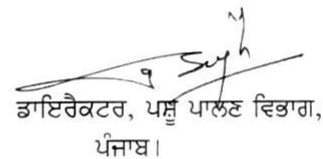 ਡਾਇਰੈਕਟਰ, ਪਸ਼ੂ ਪਾਲਣ ਵਿਭਾਗ,
ਪੰਜਾਬ।